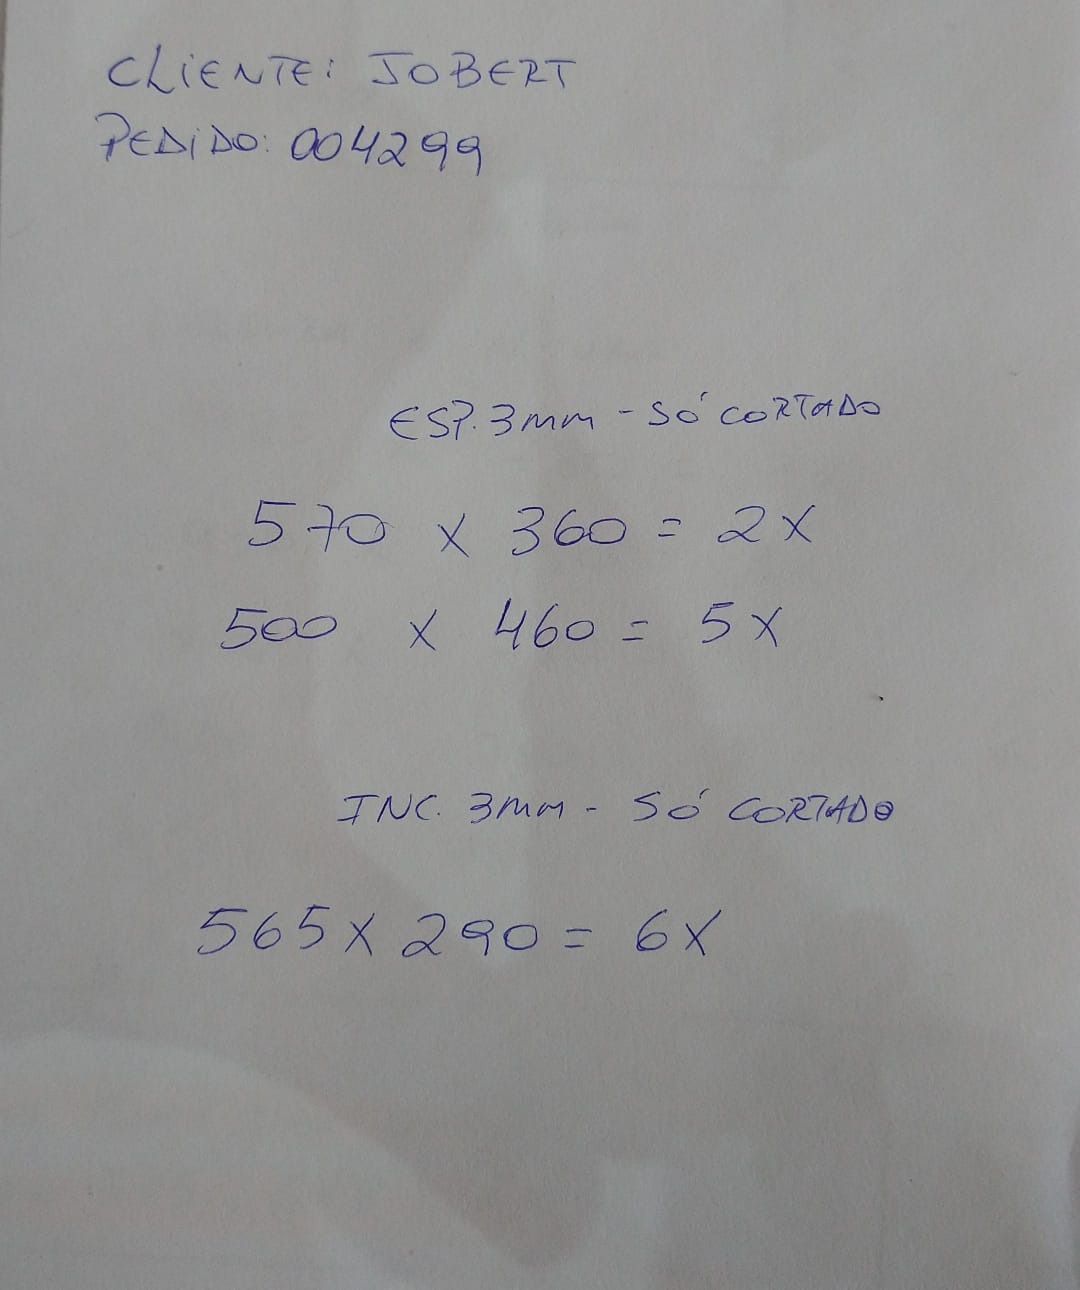 CLIENTE: JOBERT
PEDIDO: 004299
ESP. 3mm - SÓ CORTADO
570 x 360 = 2x
500 x 460 = 5x
INC. 3mm - SÓ CORTADO
565 x 290 = 6x